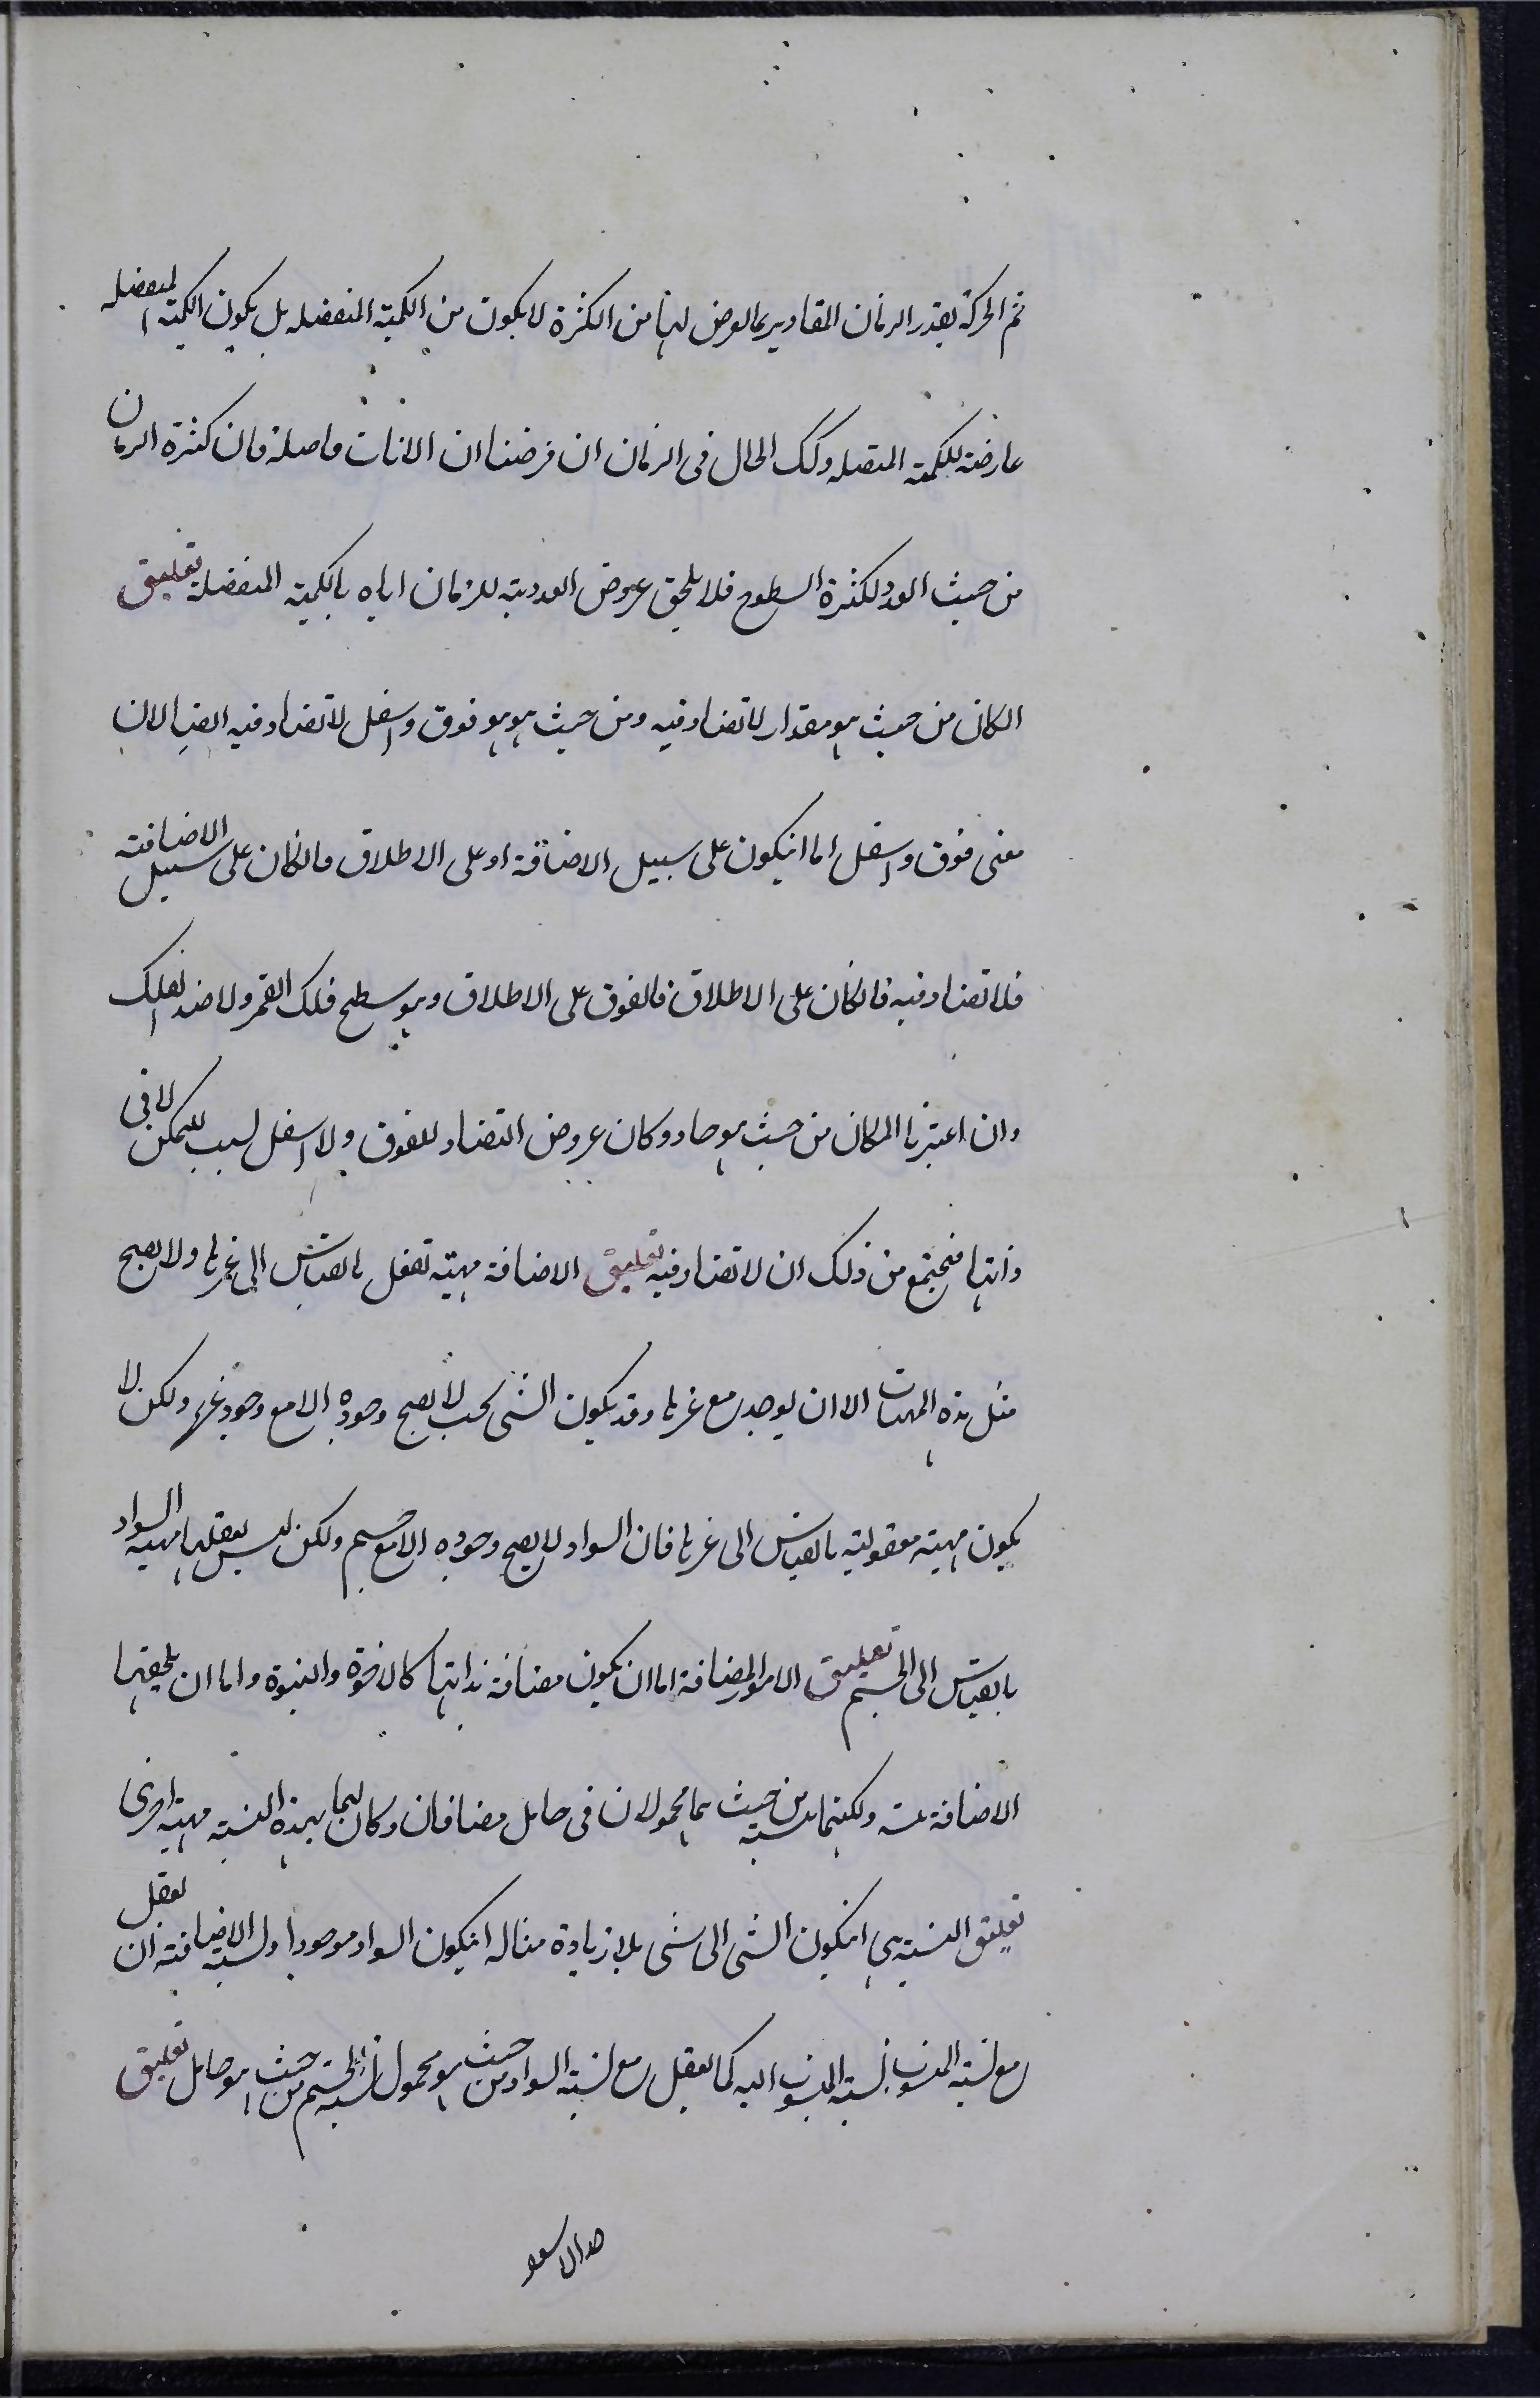 ثم الحركة بقدر الزمان المقادير بما يعرض لها من الكثرة لا يكون من الكمية المنفصله بل يكون الكمية المنفصله
عارضة للكمية المتصله وكك الحال فى الزمان ان فرضنا ان الانات فاصلة فان كثرة الزمان
من حيث العدد لكثرة السطوح فلا يلحق عروض العددية للزمان اياه بالكمية المنفصلة تعليق
المكان من حيث هو مقدار لا تضاد فيه ومن حيث هو هو فوق واسفل لا تضاد فيه ايضا لان
معنى فوق واسفل اما انيكون على سبيل الاضافة او على الاطلاق فانكان على سبيل الاضافة
فلا تضاد فيه فانكان على الاطلاق فالفوق على الاطلاق وهو سطح فلك القمر ولا ضد لفلك
وان اعتبرنا المكان من حيث هو حاد وكان عروض التضاد للفوق ولا اسفل لسبب للتمكن لا فى
ذاتها فيجتمع من ذلك ان لا تضاد فيه تعليق الاضافة مهية تعقل بالقياس الى غيرها ولا يصح
مثل هذه المهيات الا ان يوجد مع غيرها وقد يكون الشى بحيث لا يصح وجوده الا مع وجود غيره ولكن لا
يكون مهيته معقولية بالقياس الى غيرها فان السواد لا يصح وجوده الا مع جسم ولكن ليس يعقلها مهية السواد
بالقياس الى الجسم تعليق الامور المضافة اما ان يكون مضافة بذاتها كالاخوة والبنوة واما ان يلحقها
الاضافة ولكنهما من حيث هما محمولان فى حامل مضافان وكان لهما بهذه النسبة مهية اخرى
تعليق النسبة هى انيكون الشى الى شى بلا زيادة مثاله انيكون السواد موجودا ولنسبة الاضافة ان يعقل
مع نسبة المنسوب نسبة المنسوب اليه كما يعقل مع نسبة السواد من حيث هو محمول نسبة الجسم من حيث هو حامل تعليق